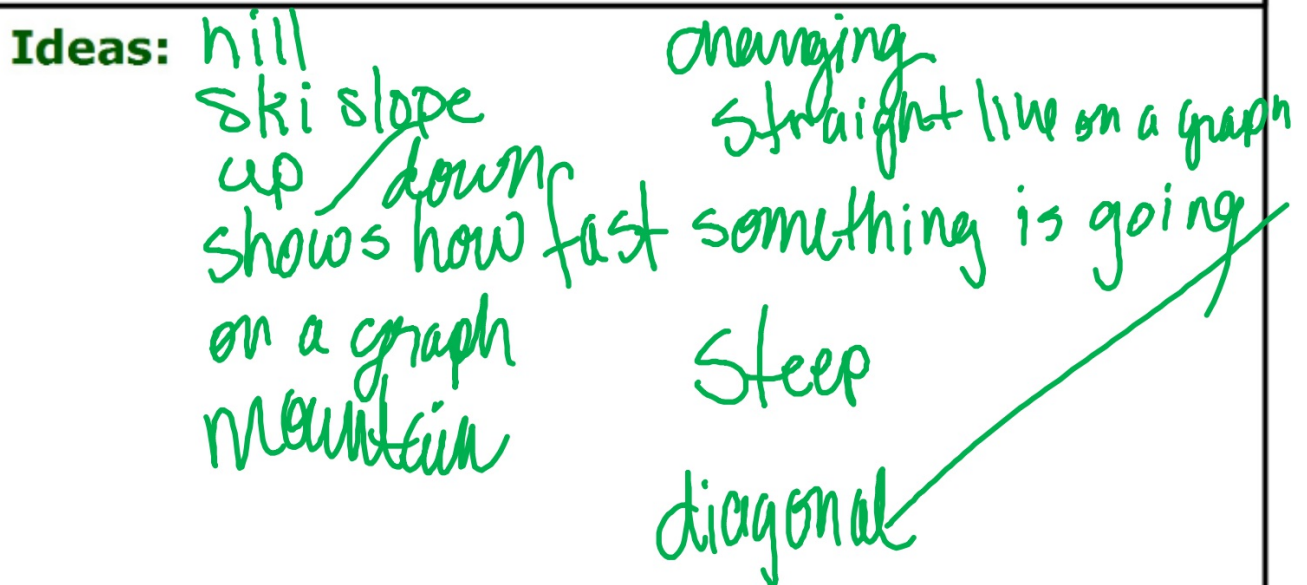 Ideas: hill
ski slope
up / down
shows how fast something is going
on a graph
mountain
changing
straight line on a graph
steep
diagonal